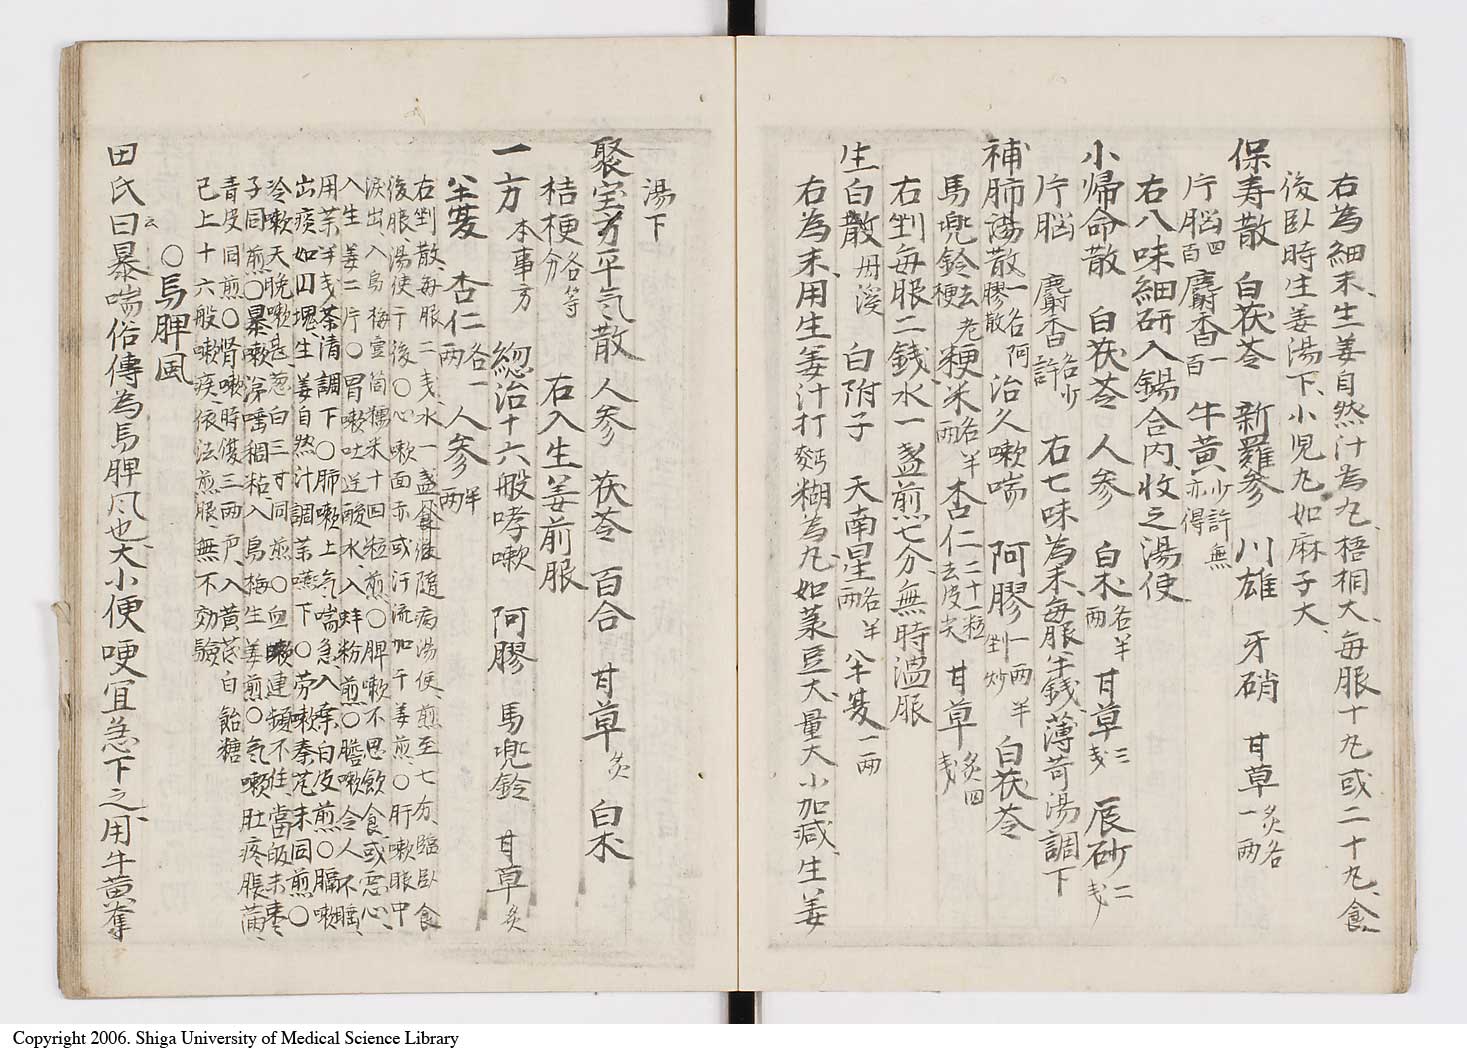 右為細末生姜自然汁為丸梧桐大每服十丸或二十丸食
後臥時生姜湯下小児丸如麻子大
保寿散 白茯苓 新羅參 川雄 牙硝 甘草炙各一兩
片脳四百 麝香一百 牛黃少許無亦得
右八味細研入錫合內收之湯使
小帰命散 白茯苓 人參 白朮各半兩 甘草三戔 辰砂二戔
片脳 麝香各少許 右七味為末每服半錢薄荷湯調下
補肺湯散一名阿膠散 治久嗽喘 阿膠一兩半剉炒 白茯苓
馬兜鈴去老梗 粳米各半兩 杏仁二十一粒去皮尖 甘草炙四戔
右剉每服二錢水一盞煎七分無時溫服
生白散丹溪 白附子 天南星各半兩 半夏一兩
右為末用生姜汁打麪糊為丸如菉豆大量大小加减生姜
湯下
聚宝方平气散 人參 茯苓 百合 甘草炙 白朮
桔梗各等分 右入生姜煎服
一方本事方 総治十六般哮嗽 阿膠 馬兜鈴 甘草炙
半夏 杏仁各一兩 人參半兩
右剉散每服二戔水一盞食後隨病湯使煎至七分臨臥食
後服湯使于後○心嗽面赤或汗流加干姜煎○肝嗽眼中
淚出入烏梅壹箇糯米十四粒煎○脾嗽不思飲食或惡心
入生姜二片○胃嗽吐逆酸水入蚌粉煎○膽嗽令人不睡
用茶半戔茶清調下○肺嗽上气喘急入桑白皮煎○膈嗽
出痰如団塊生姜自然汁調茶嚥下○劳嗽秦芃末同煎○
冷嗽天晚嗽甚葱白三寸同煎○血嗽連頻不住當皈末棗
子同煎○暴嗽涕唾稠粘入烏梅生姜煎○气嗽肚疼脹滿
青皮同煎○腎嗽時復三兩声入黃芪白飴糖
已上十六般嗽疾依法煎服無不効驗
○馬脾風
田氏曰云暴喘俗傳為馬脾风也大小便哽宜急下之用牛黃奪